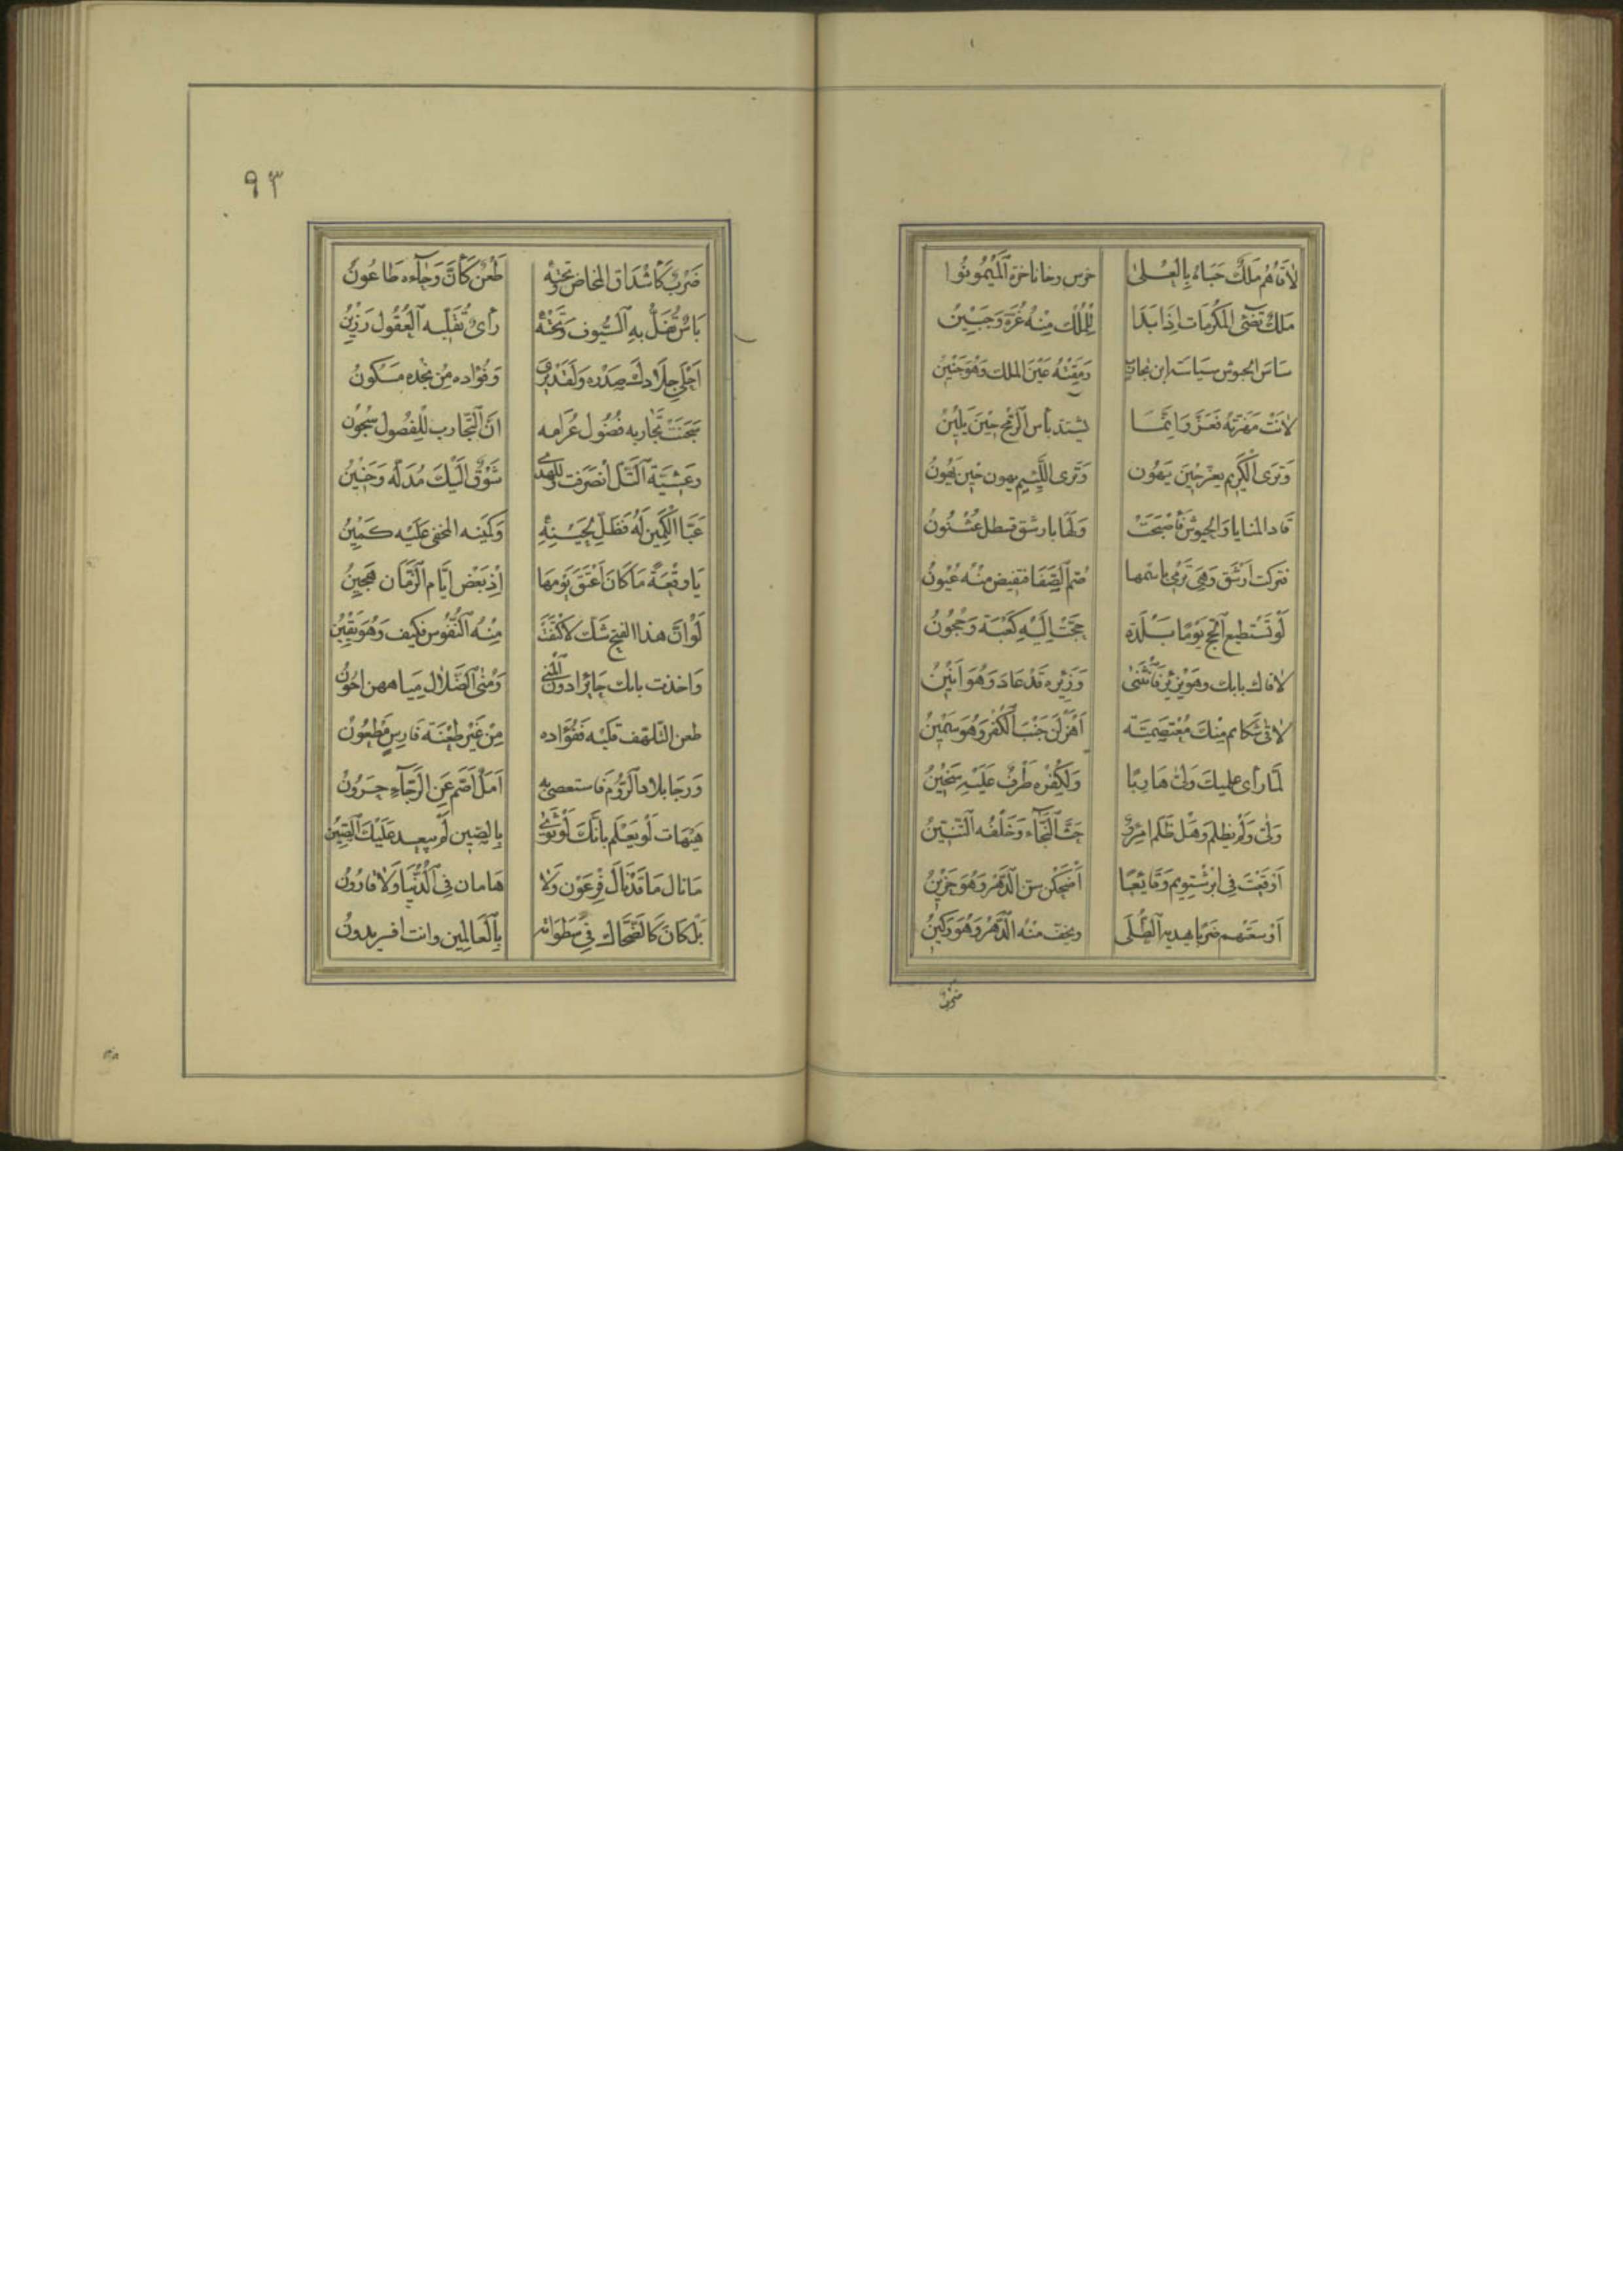 لاقاهم ملك حباه بالعلى خرس وخانا خره الميمونوا
ملك تضئ المكرمات اذا بدا للملك منه غرة وجبين
ساس الجيوش سياسة ابن تجارب رمقته عين الملك وهو جنين
لانت مهزته فعز وانما يشتد بأس الرمح حين يلين
وترى الكريم يعز حين يهون وترى اللئيم يهون حين يهون
قاد المنايا والجيوش فأصبحت ولها بارشق قسطل عثنون
فتركت ارشق وهي ترمى باسمها صم الصفا فتفيض منه عيون
لو تستطيع الحج يوما بلدة حجت إليه كعبة وحجون
لاقاك بابك وهو يزئر فانثنى وزئيره قد عاد وهو انين
لاقى شكائم منك معتصمية اهزلن جنب الكفر وهو سمين
لما رأى علميك ولى هاربا ولكفره طرف عليه سخين
ولى ولم يظلم وهل ظلم امرؤ حث النجاء وخلفه التنين
اوقعت في ابرشتويم وقايعا أضحكن سن الدهر وهو حزين
اوسعتهم ضربا به الطلى ويخف منه الدهر وهو ركين
ضرب
٩٣
ضرب كاشداق المخاض تحته طعن كان وجاءه طاعون
باس تفل به السيوف وتحته رأى تفل به العقول رزين
اجلى جلادك صدره ولقد يرى وفؤاده من نجده مسكون
سجنت تجاربه فضول عرامه ان التجارب للفضول سجون
وعشية التل انصرفت وللهدى شوق اليك مدله وحنين
عبا الكمين له فظل لحينه وكمينه المخفى عليه كمين
يا وقعة ما كان اعتق يومها إذ بعض ايام الزمان هجين
لو ان هذا الفتح شك لاكتفت منه النفوس فكيف وهو يقين
واخذت بابك حائرا دون المنى ومنى الضلال مياههن اجون
طعن التلهف قلبه ففؤاده من غير طعنة فارس مطعون
ورجا بلاد الروم فاستعصى به امل اصم عن الرجاء حرون
هيهات لو يعلم بانك لو ثوى بالصين لم يبعد عليك الصين
ما نال ما قد نال فرعون ولا هامان في الدنيا ولا قارون
بل كان كالضحاك في سطواته بالعالمين وانت افريدون